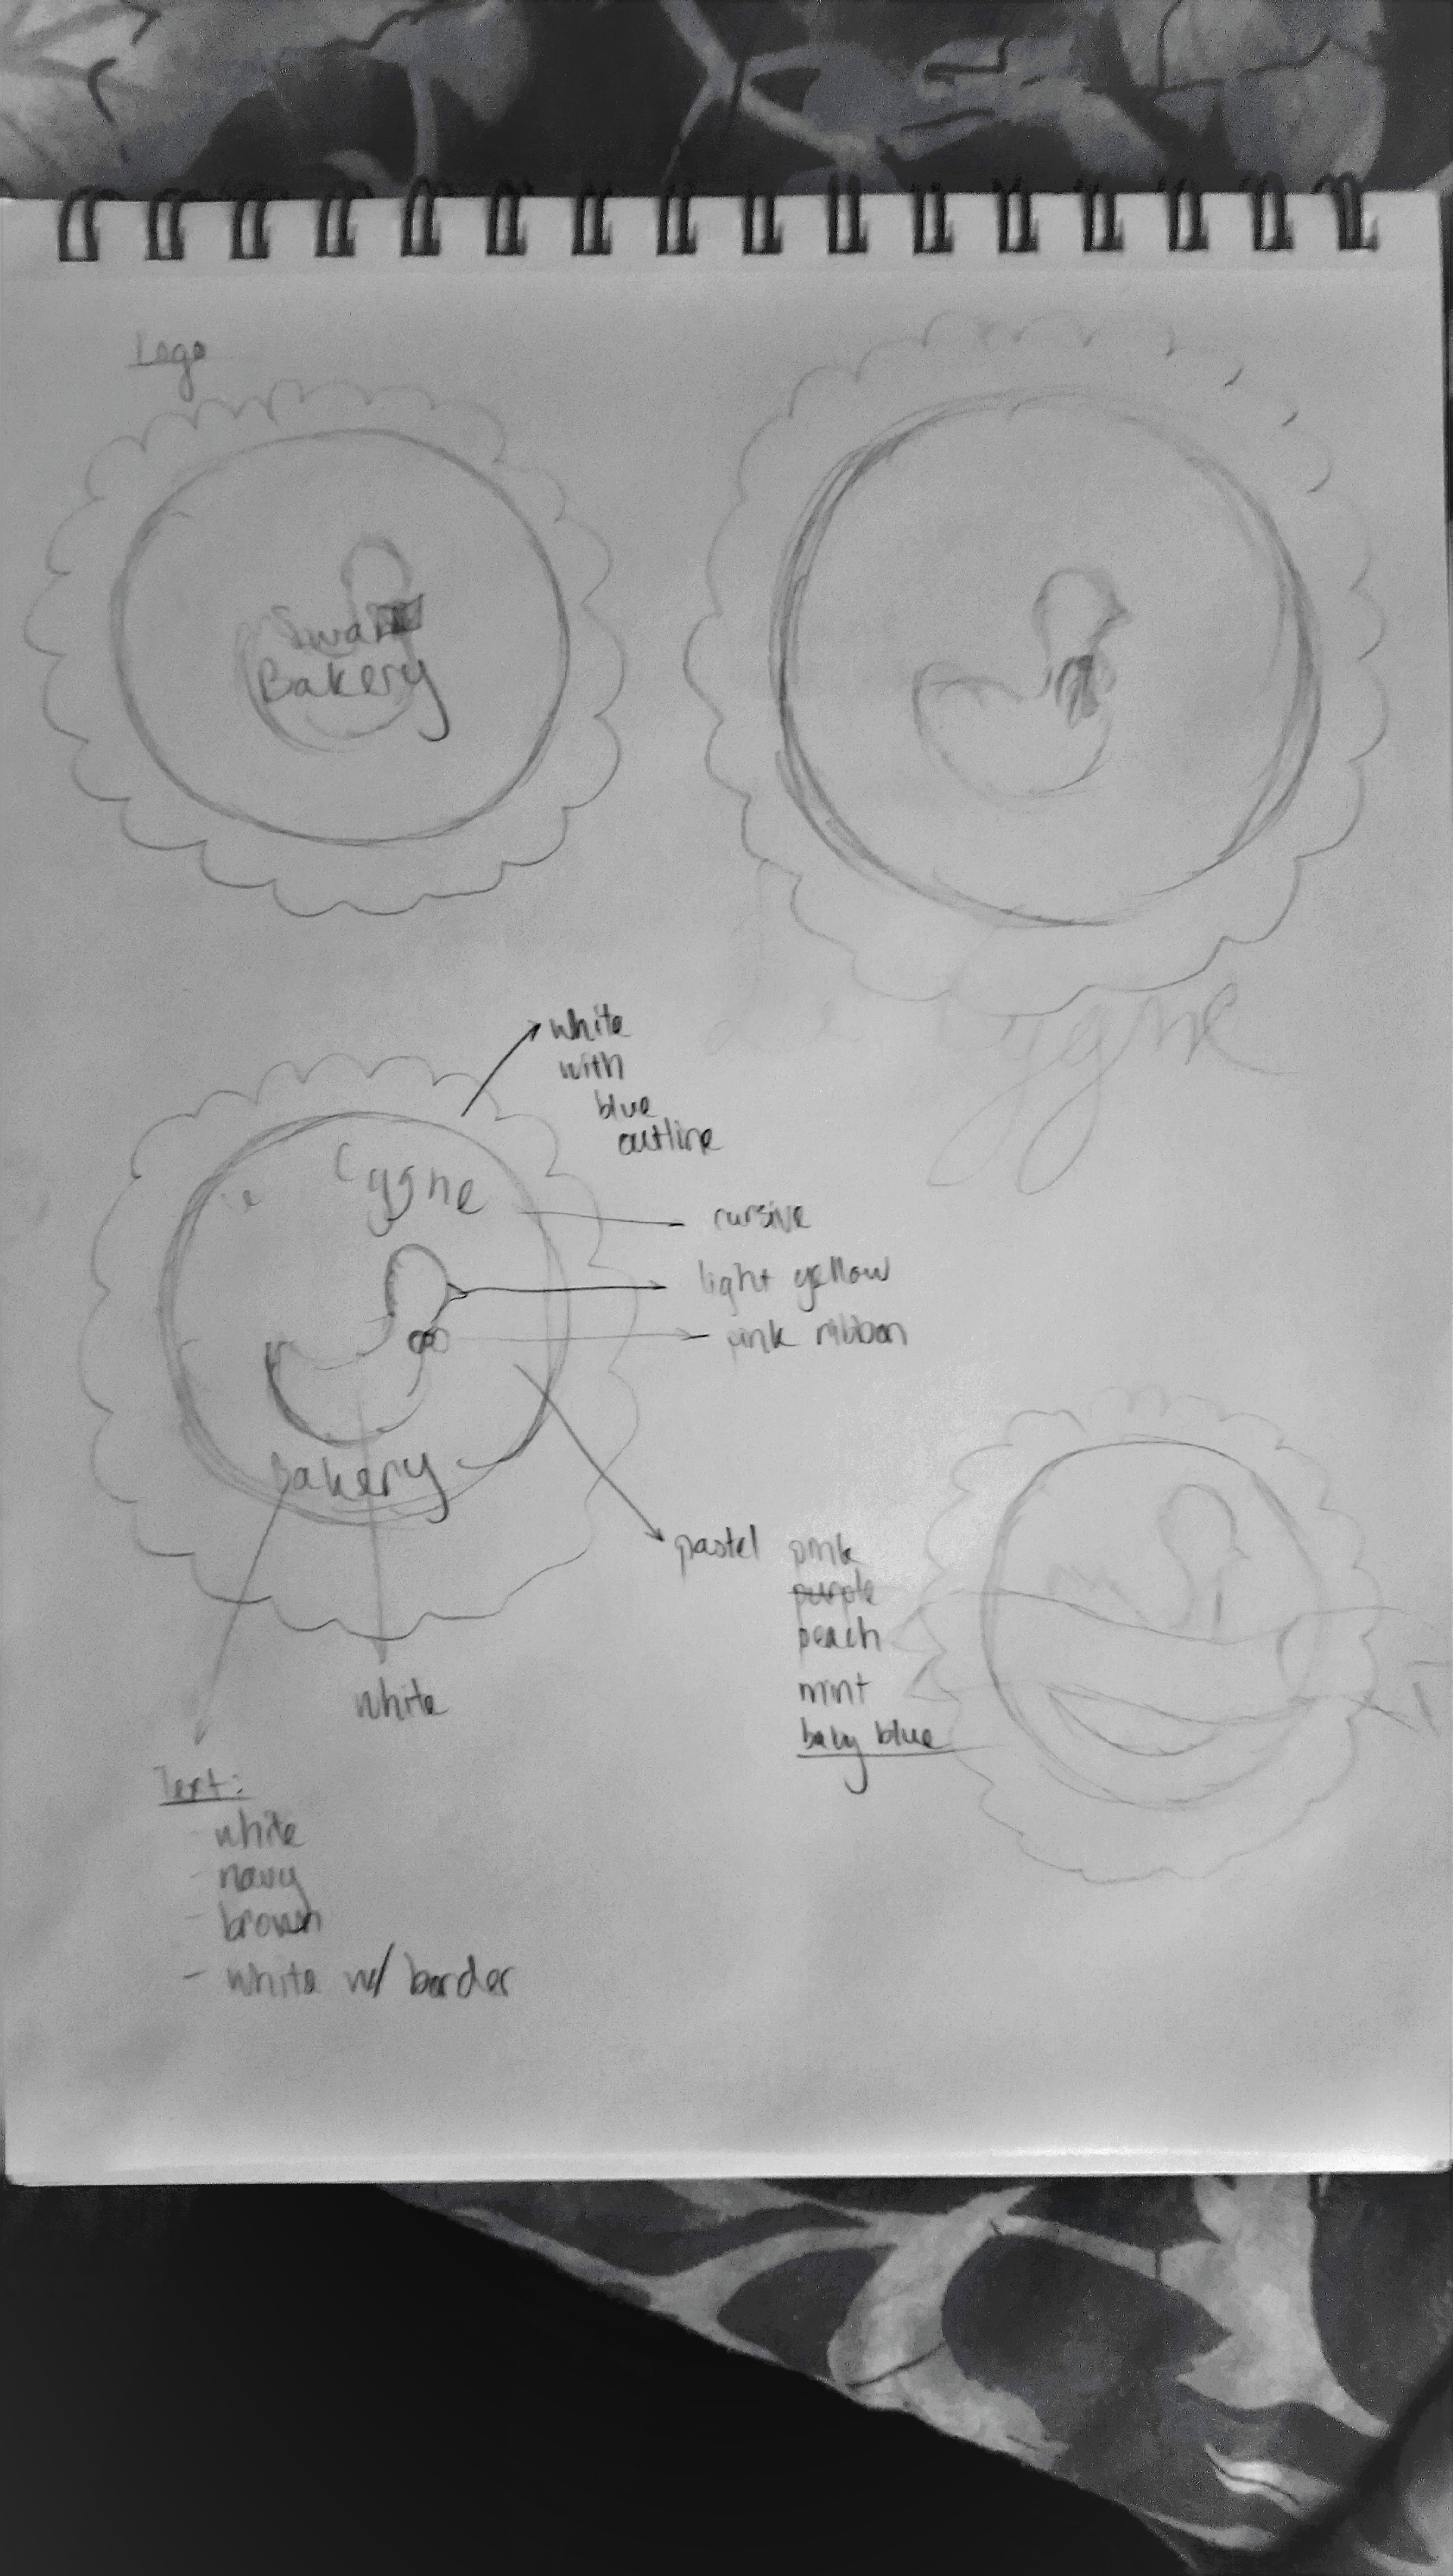 Logo
Swan
Bakery
Le Cygne
white
with
blue
outline
le Cygne
cursive
light yellow
pink ribbon
Bakery
pastel pink
purple
peach
mint
baby blue
white
Text:
- white
- navy
- brown
- white w/ border